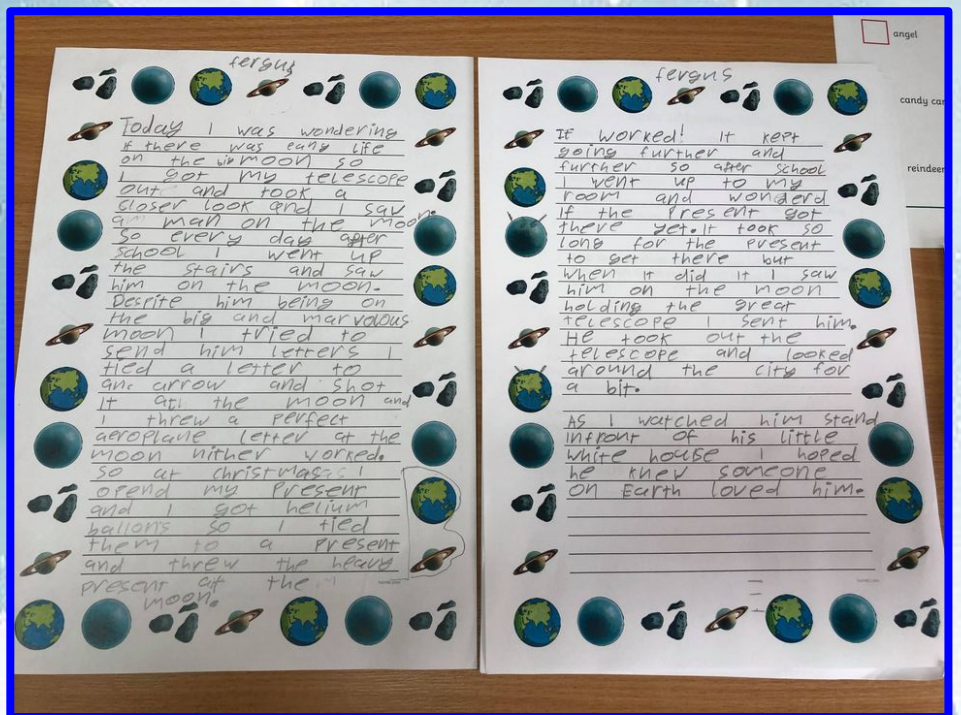 fergus
Today I was wondering
if there was eany life
on the big moon so
I got my telescope
out and took a
closer look and I saw
a man on the moon.
So every day after
school I went up
the stairs and saw
him on the moon.
Despite him being on
the big and marvolous
moon I tried to
send him letters I
tied a letter to
an arrow and shot
it at the moon and
I threw a perfect
aeroplane letter at the
moon nither worked.
so at christmas I
opend my Present
and I got helium
ballons so I tied
them to a present
and threw the heavy
present at the
moon.
fergus
It worked! It kept
going further and
further so after school
I went up to my
room and wonderd
If the Present got
there yet. it took so
long for the present
to get there but
when it did it I saw
him on the moon
holding the great
telescope I sent him.
He took out the
telescope and looked
around the city for
a bit.
As I watched him stand
infront of his little
white house I hoped
he knew someone
on Earth loved him.
angel
candy
reindeer